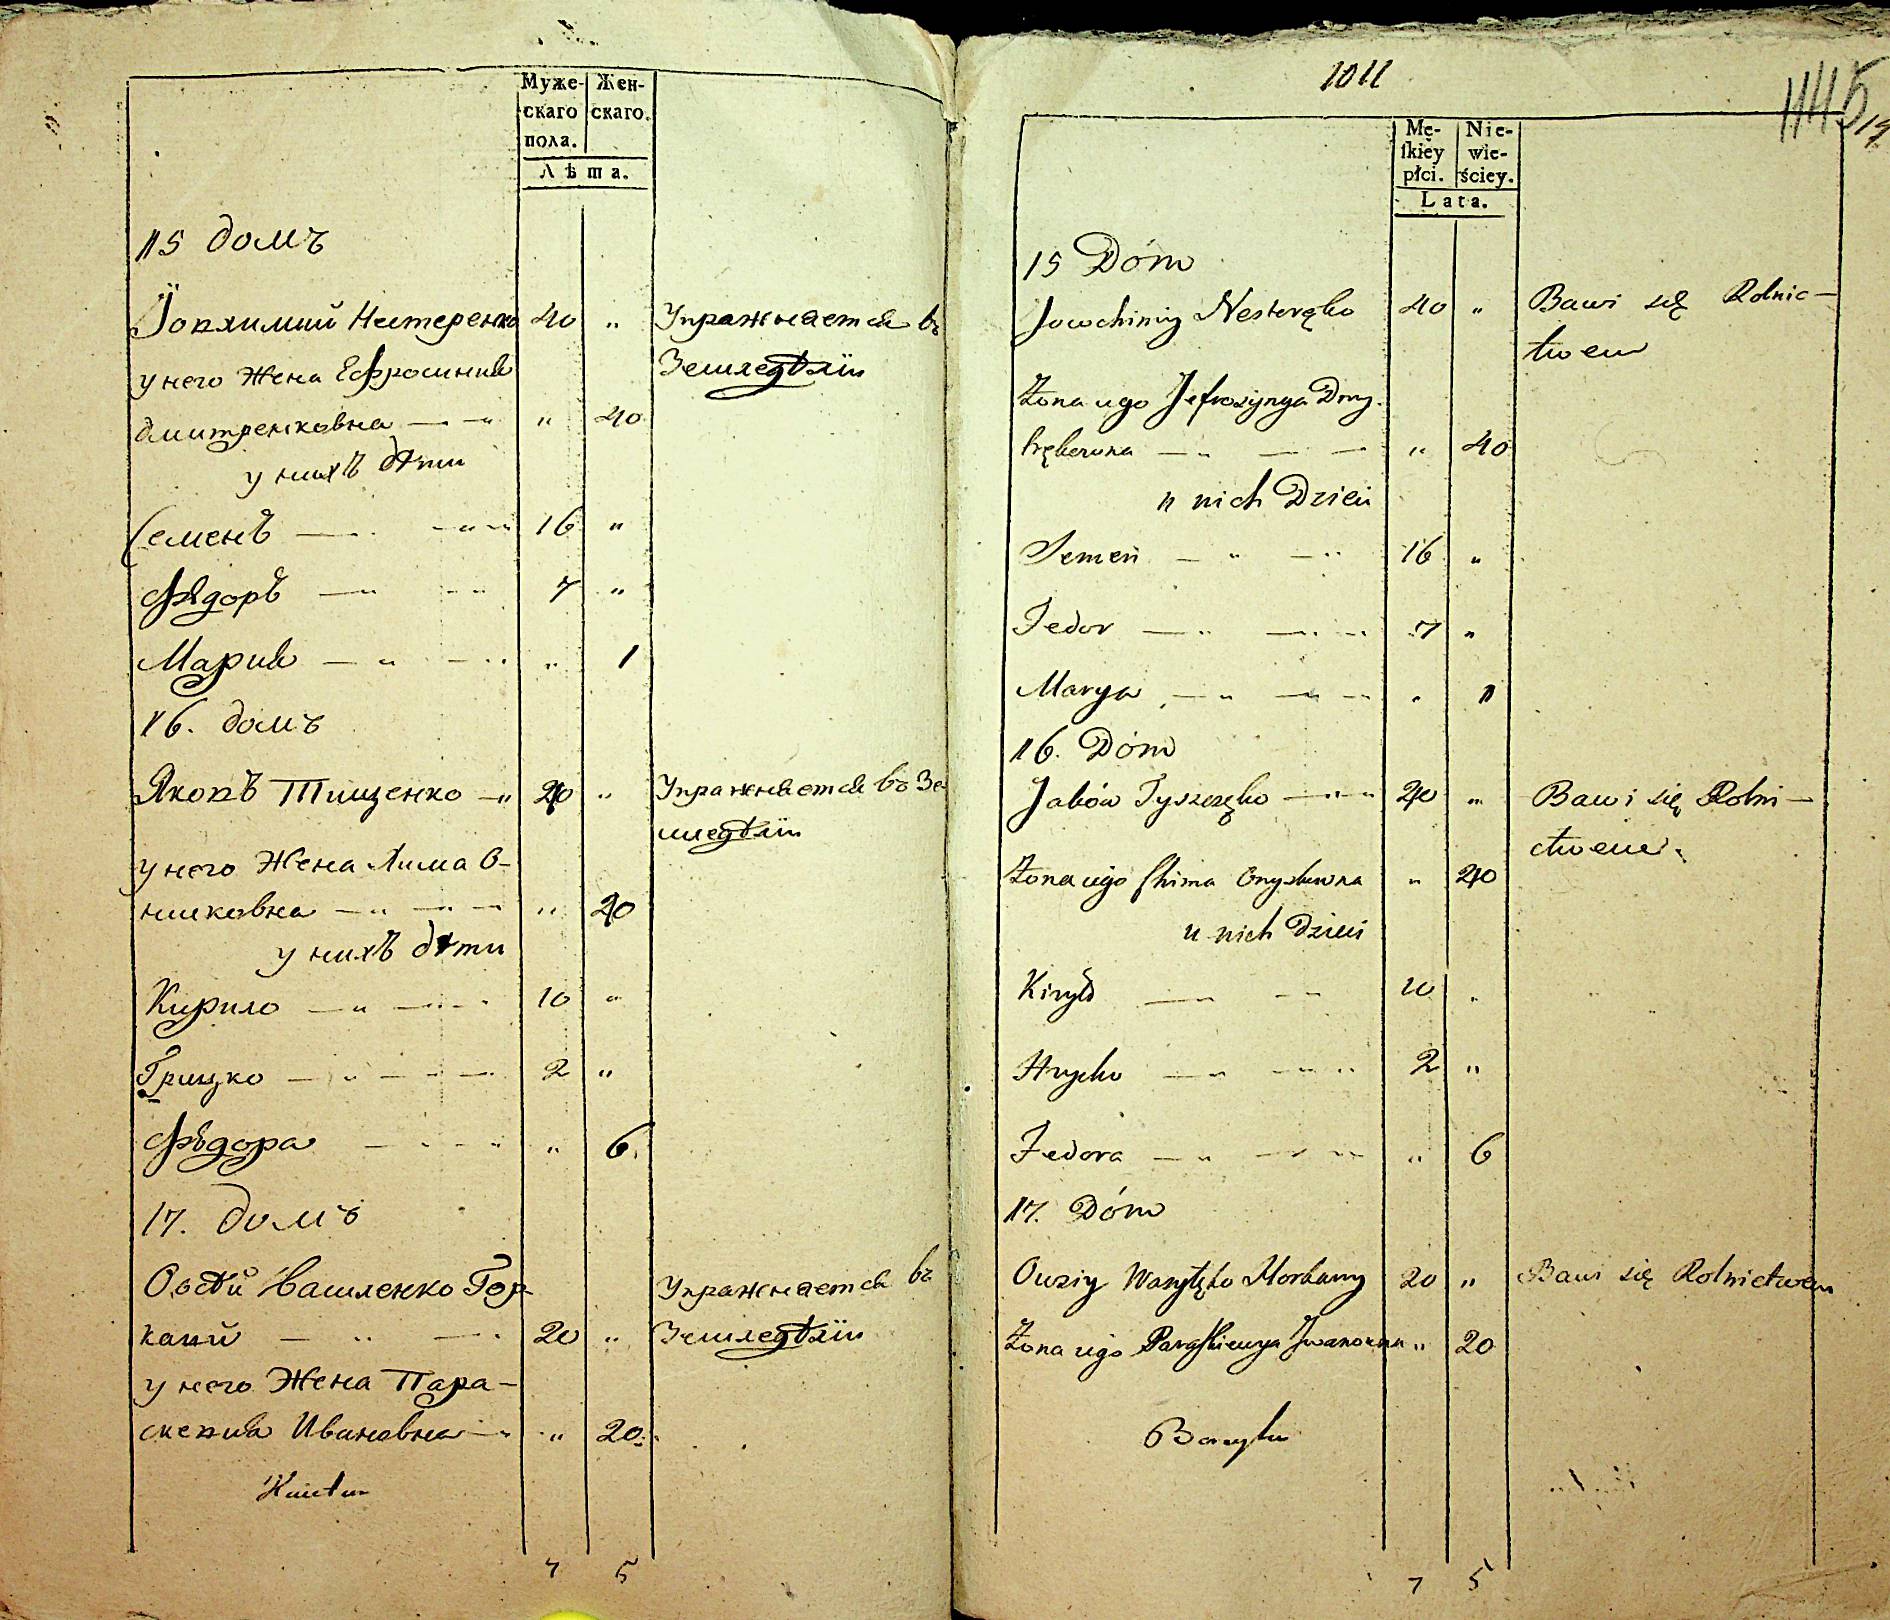 Муже-
скаго
пола.
Жен-
скаго.
Лѣта.
15 домъ
Іовхимий Нестеренко 40 "
Упражняется въ
Земледѣлїи
у него Жена Ефросиния
Дмитренковна " 40
у нихъ дѣти
Семенъ 16 "
Ѳедоръ 7 "
Мария " 1
16. домъ
Яковъ Тищенко 40 "
Упражняется въ Зе
мледѣлїи
у него Жена Хима О-
никовна " 40
у нихъ дѣти
Кирило 10 "
Грицко 2 "
Ѳедора " 6
17. домъ
Овсѣй Василенко Гор-
20 "
Упражняется въ
Земледѣлїи
у него Жена Пара-
скевия Ивановна " 20
7 5
1011
1145
Mę-
skiey
płci.
Nie-
wie-
ściey.
Lata.
15 Dóm
Jowchimiy Nesteręko 40 "
Bawi się Rolnic-
twem
Żona iego Jefrozynya Dmy-
trękowna " 40
u nich Dzieci
Semen 16 "
Fedor 7 "
Marya " 1
16. Dóm
Jaków Tyszczęko 40 "
Bawi się Rolni-
ctwem
Żona iego Chima " 40
u nich Dzieci
Kiryło 10 "
Hrycko 2 "
Fedora " 6
17. Dóm
Owsiy Wasylęko 20 "
Bawi się Rolnictwem
Żona iego Paraskiewya Jwanowna " 20
7 5